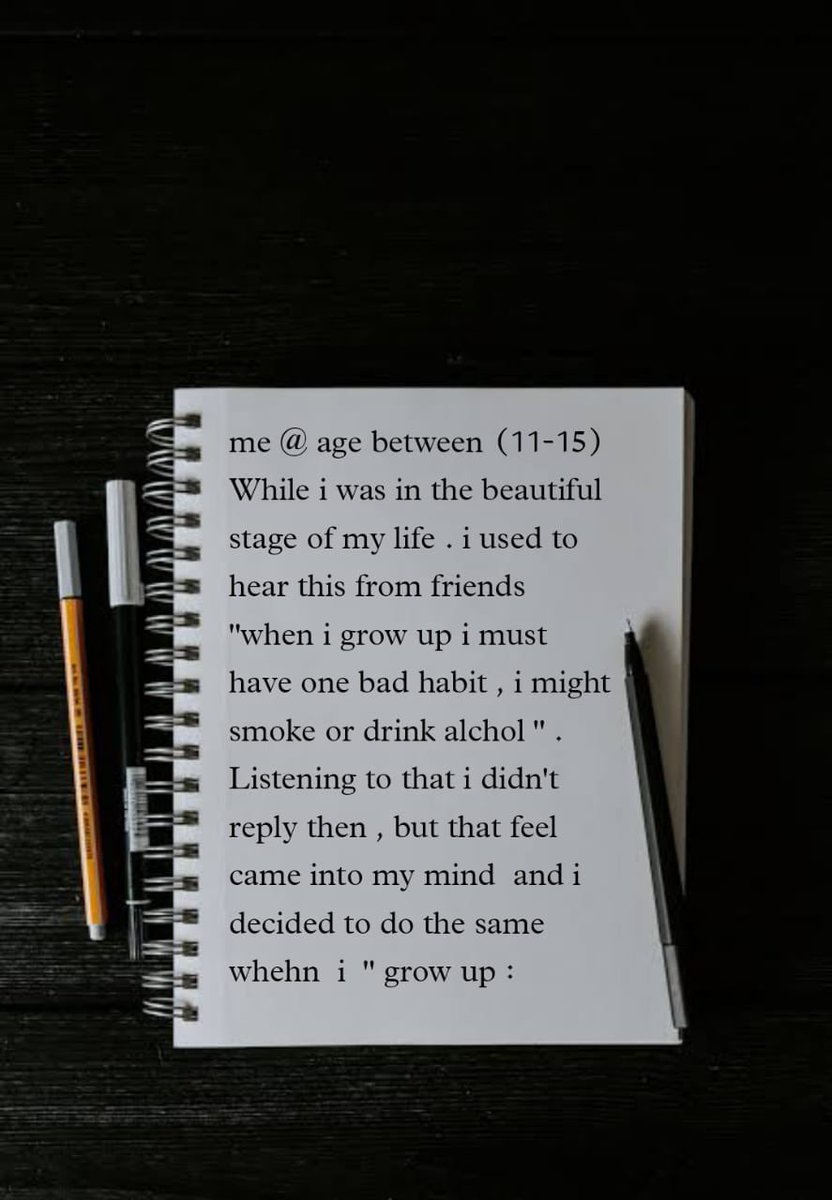 me @ age between (11-15)
While i was in the beautiful
stage of my life . i used to
hear this from friends
"when i grow up i must
have one bad habit , i might
smoke or drink alchol " .
Listening to that i didn't
reply then , but that feel
came into my mind  and i
decided to do the same
whehn  i  " grow up :